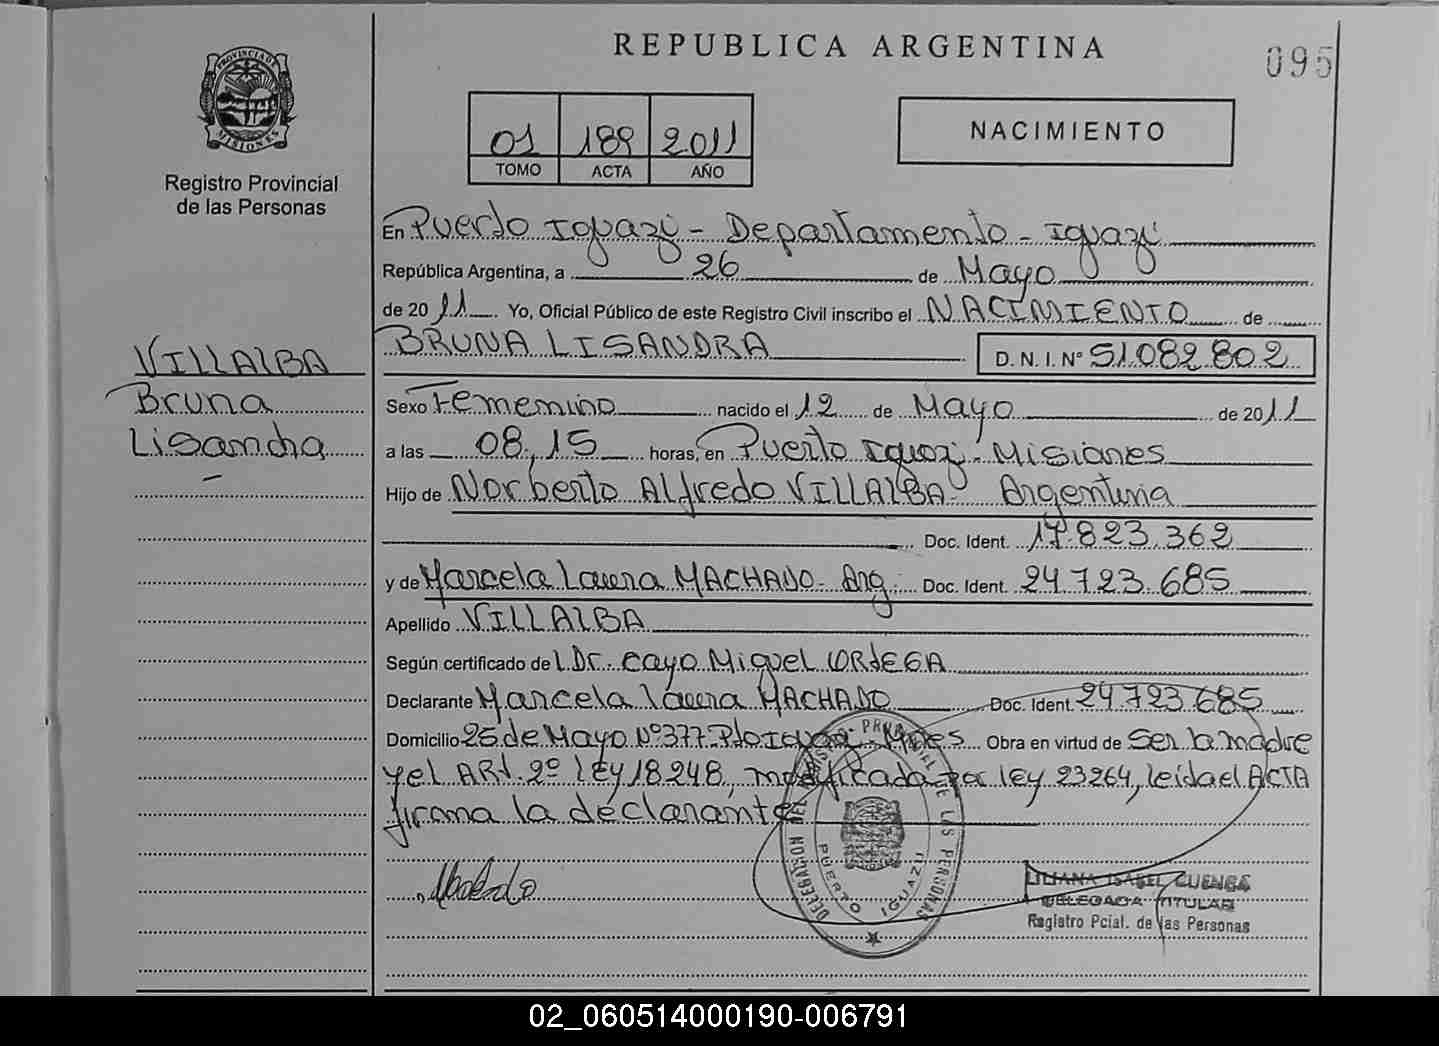 REPUBLICA ARGENTINA
095
PROVINCIA DE MISIONES
Registro Provincial
de las Personas
01 189 2011
TOMO ACTA AÑO
NACIMIENTO
En Puerto Iguazú - Departamento - Iguazú
República Argentina, a 26 de Mayo
de 2011 Yo, Oficial Público de este Registro Civil inscribo el NACIMIENTO de
BRUNA LISANDRA D.N.I. Nº 51.082.802
VILLALBA
Bruna
Lisandra
Sexo Femenino nacido el 12 de Mayo de 2011
a las 08,15 horas, en Puerto Iguazú - Misiones
Hijo de Norberto Alfredo VILLALBA - Argentina
Doc. Ident. 17.823.362
y de Marcela Laura MACHADO - Arg. Doc. Ident. 24.723.685
Apellido VILLALBA
Según certificado del Dr. Cayo Miguel ORTEGA
Declarante Marcela Laura MACHADO Doc. Ident. 24.723.685
Domicilio 25 de Mayo Nº 377 - Pto Iguazú - Mnes Obra en virtud de Ser la madre
y el ARt. 2º LEY 18248, modificada por ley 23264, leida el ACTA
firma la declarante
DELEGACION DEL REGISTRO PROVINCIAL DE LAS PERSONAS
PUERTO IGUAZU
LILIANA ISABEL CUENCA
DELEGADA TITULAR
Registro Pcial. de las Personas
02_060514000190-006791